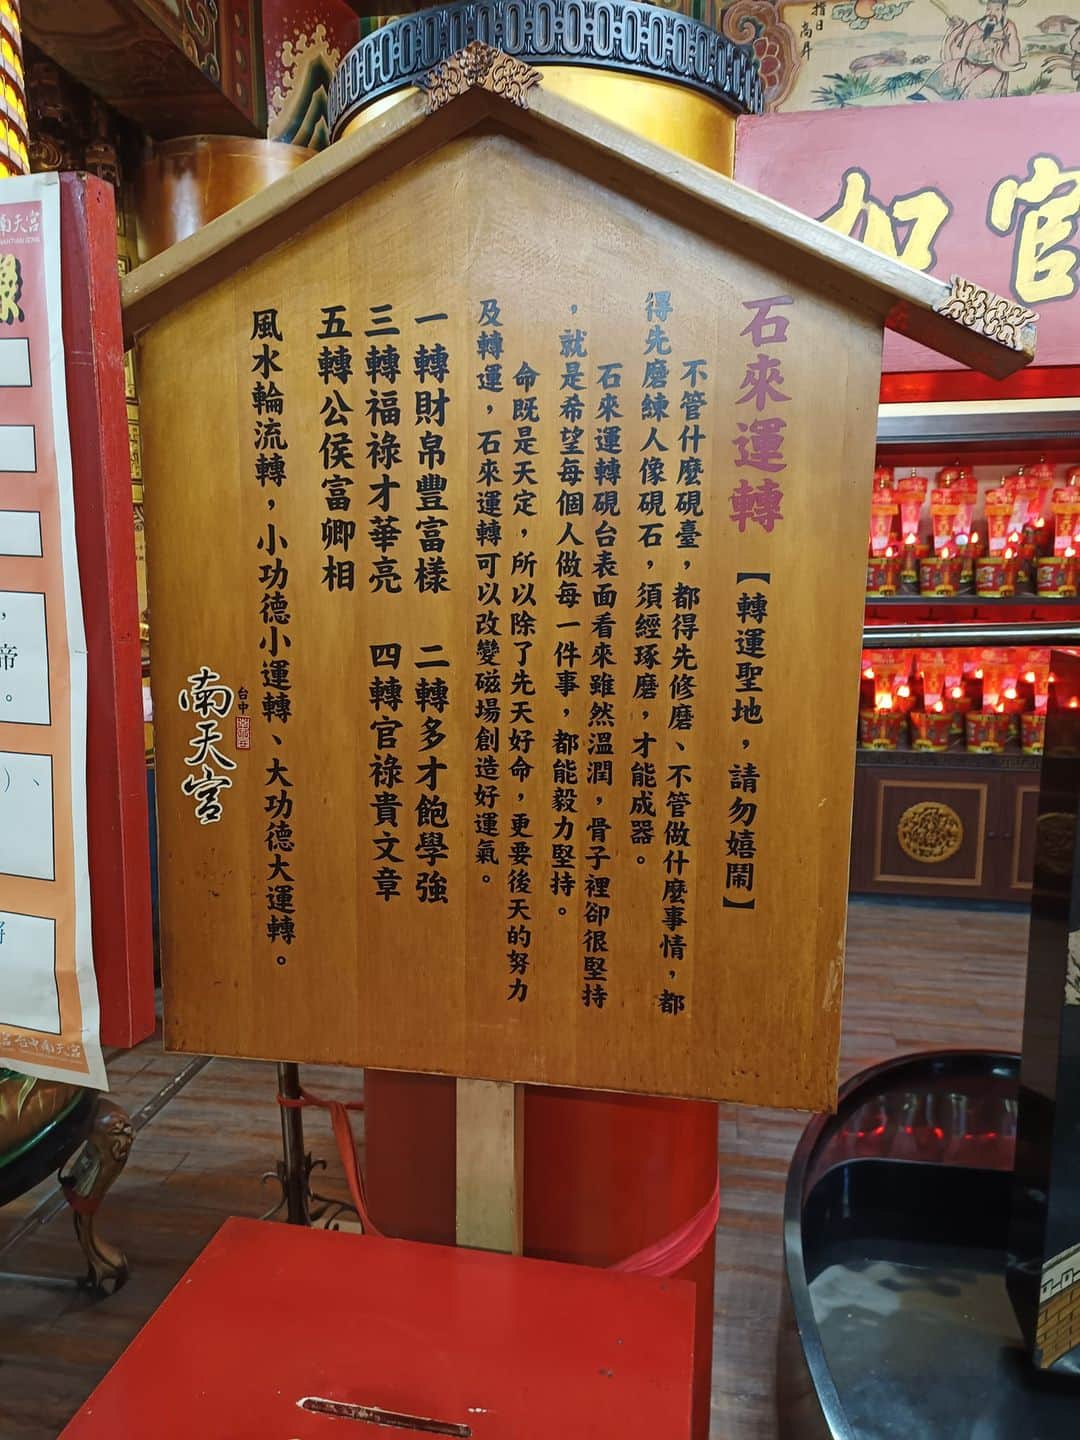 石來運轉
【轉運聖地，請勿嬉鬧】
不管什麼硯臺，都得先修磨、不管做什麼事情，都
得先磨練人像硯石，須經琢磨，才能成器。
石來運轉硯台表面看來雖然溫潤，骨子裡卻很堅持
，就是希望每個人做每一件事，都能毅力堅持。
命既是天定，所以除了先天好命，更要後天的努力
及轉運，石來運轉可以改變磁場創造好運氣。
一轉財帛豐富樣　二轉多才飽學強
三轉福祿才華亮　四轉官祿貴文章
五轉公侯富卿相
風水輪流轉，小功德小運轉、大功德大運轉。
台中
南天宮
指日
高昇
加官
南天宮
帝
台中南天宮